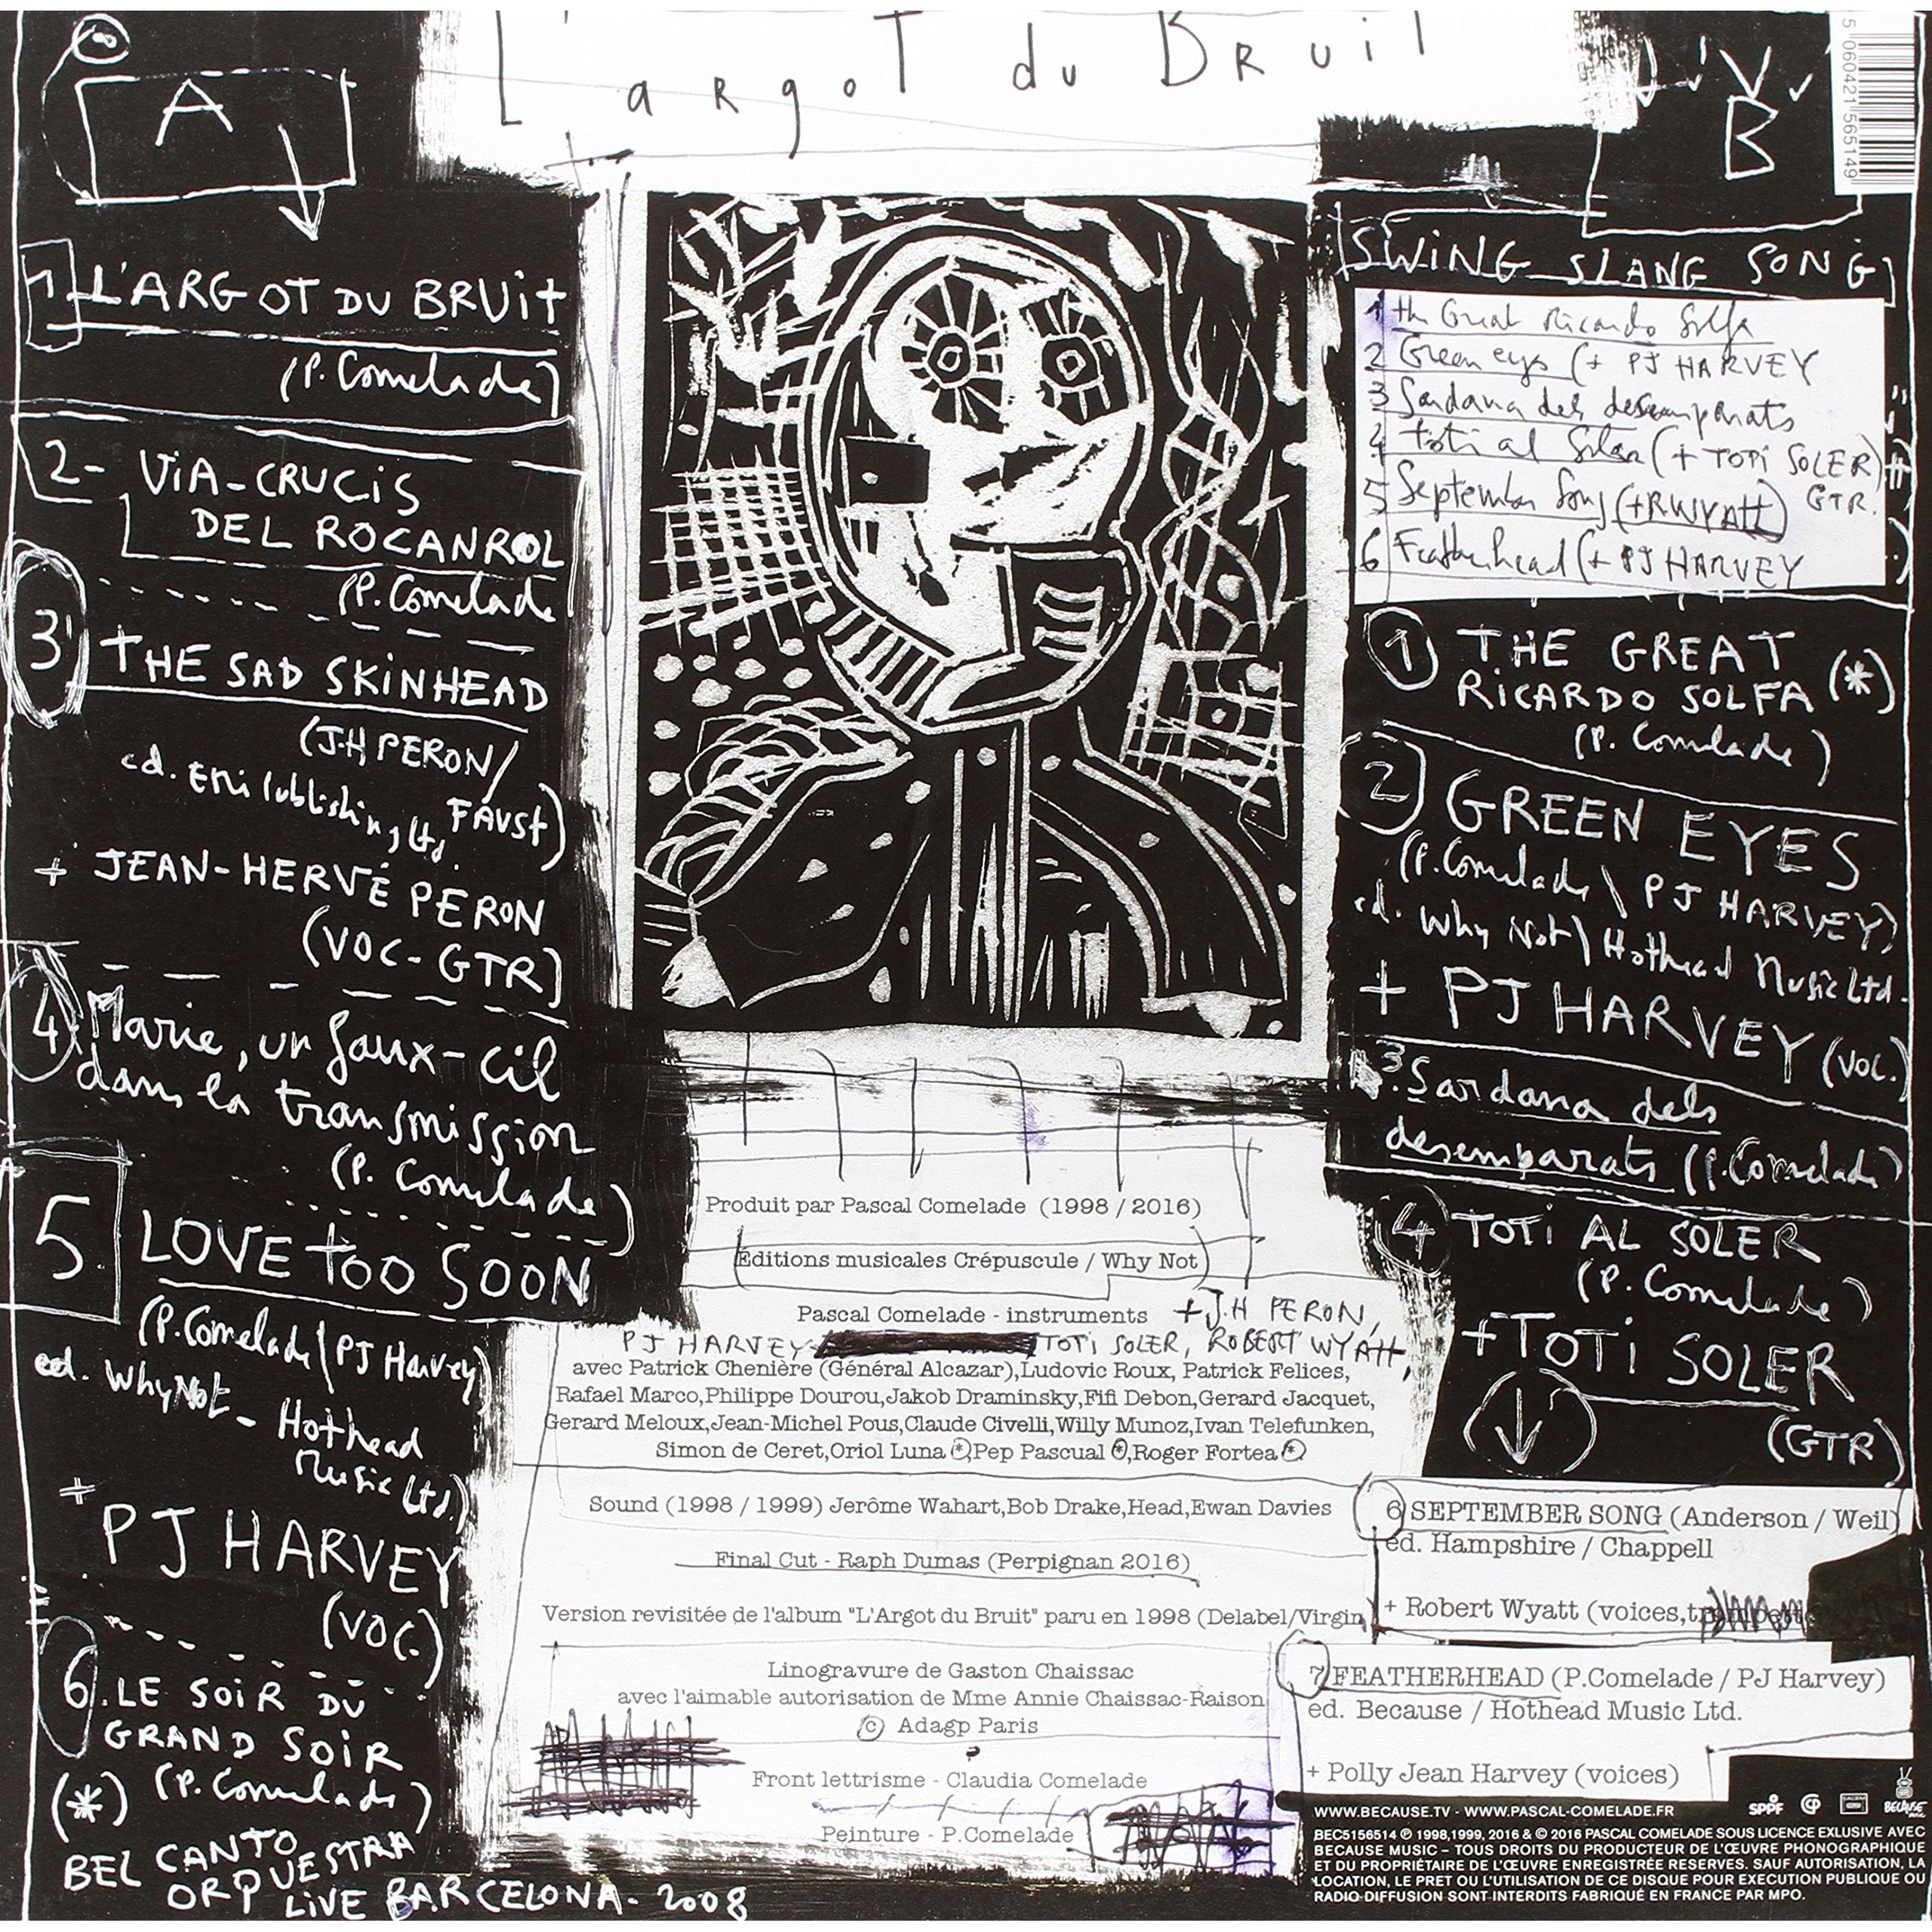 L'argot du Bruit
A
1 L'ARGOT DU BRUIT
(P. Comelade)
2- VIA-CRUCIS
DEL ROCANROL
(P. Comelade
3 THE SAD SKINHEAD
(J.H PERON/
FAUST)
ed. EMI Publishing Ltd.
+ JEAN-HERVÉ PERON
(VOC-GTR)
4. Marie, un faux-cil
dans la transmission
(P. Comelade)
5. LOVE TOO SOON
(P. Comelade / PJ Harvey)
ed. Why Not - Hothead
Music Ltd.)
+ PJ HARVEY
(VOC.)
6. LE SOIR DU
GRAND SOIR
(*) (P. Comelade)
BEL CANTO
ORQUESTRA
LIVE BARCELONA - 2008
Produit par Pascal Comelade (1998 / 2016)
(Editions musicales Crépuscule / Why Not)
Pascal Comelade - instruments + J.H PERON,
PJ HARVEY TOTI SOLER, ROBERT WYATT,
avec Patrick Chenière (Général Alcazar),Ludovic Roux, Patrick Felices,
Rafael Marco,Philippe Dourou,Jakob Draminsky,Fifi Debon,Gerard Jacquet,
Gerard Meloux,Jean-Michel Pous,Claude Civelli,Willy Munoz,Ivan Telefunken,
Simon de Ceret,Oriol Luna(*),Pep Pascual(*),Roger Fortea(*)
Sound (1998 / 1999) Jerôme Wahart,Bob Drake,Head,Ewan Davies
Final Cut - Raph Dumas (Perpignan 2016)
Version revisitée de l'album "L'Argot du Bruit" paru en 1998 (Delabel/Virgin
Linogravure de Gaston Chaissac
avec l'aimable autorisation de Mme Annie Chaissac-Raison
© Adagp Paris
Front lettrisme - Claudia Comelade
Peinture - P.Comelade
B
5 060421 565149
SWING SLANG SONG
1 the Great Ricardo Solfa
2 Green eyes (+ PJ HARVEY
3 Sardana dels desemparats
4 toti al Soler (+ TOTI SOLER)
GTR.
5 September Song (+RWYATT)
6 Featherhead (+ PJ HARVEY
1 THE GREAT
RICARDO SOLFA (*)
(P. Comelade)
2 GREEN EYES
(P. Comelade \ PJ HARVEY)
ed. Why Not \ Hothead Music Ltd.
+ PJ HARVEY (VOC.)
3. Sardana dels
desemparats (P. Comelade)
4 TOTI AL SOLER
(P. Comelade)
+TOTI SOLER
(GTR)
6 SEPTEMBER SONG (Anderson / Weil)
ed. Hampshire / Chappell
+ Robert Wyatt (voices,
7 FEATHERHEAD (P.Comelade / PJ Harvey)
ed. Because / Hothead Music Ltd.
+ Polly Jean Harvey (voices)
WWW.BECAUSE.TV - WWW.PASCAL-COMELADE.FR
SPPF SACEM BECAUSE
BEC5156514 ℗ 1998,1999, 2016 & © 2016 PASCAL COMELADE SOUS LICENCE EXLUSIVE AVEC
BECAUSE MUSIC – TOUS DROITS DU PRODUCTEUR DE L'ŒUVRE PHONOGRAPHIQUE
ET DU PROPRIÉTAIRE DE L'ŒUVRE ENREGISTRÉE RESERVES. SAUF AUTORISATION, LA
LOCATION, LE PRET OU L'UTILISATION DE CE DISQUE POUR EXECUTION PUBLIQUE OU
RADIO DIFFUSION SONT INTERDITS FABRIQUÉ EN FRANCE PAR MPO.